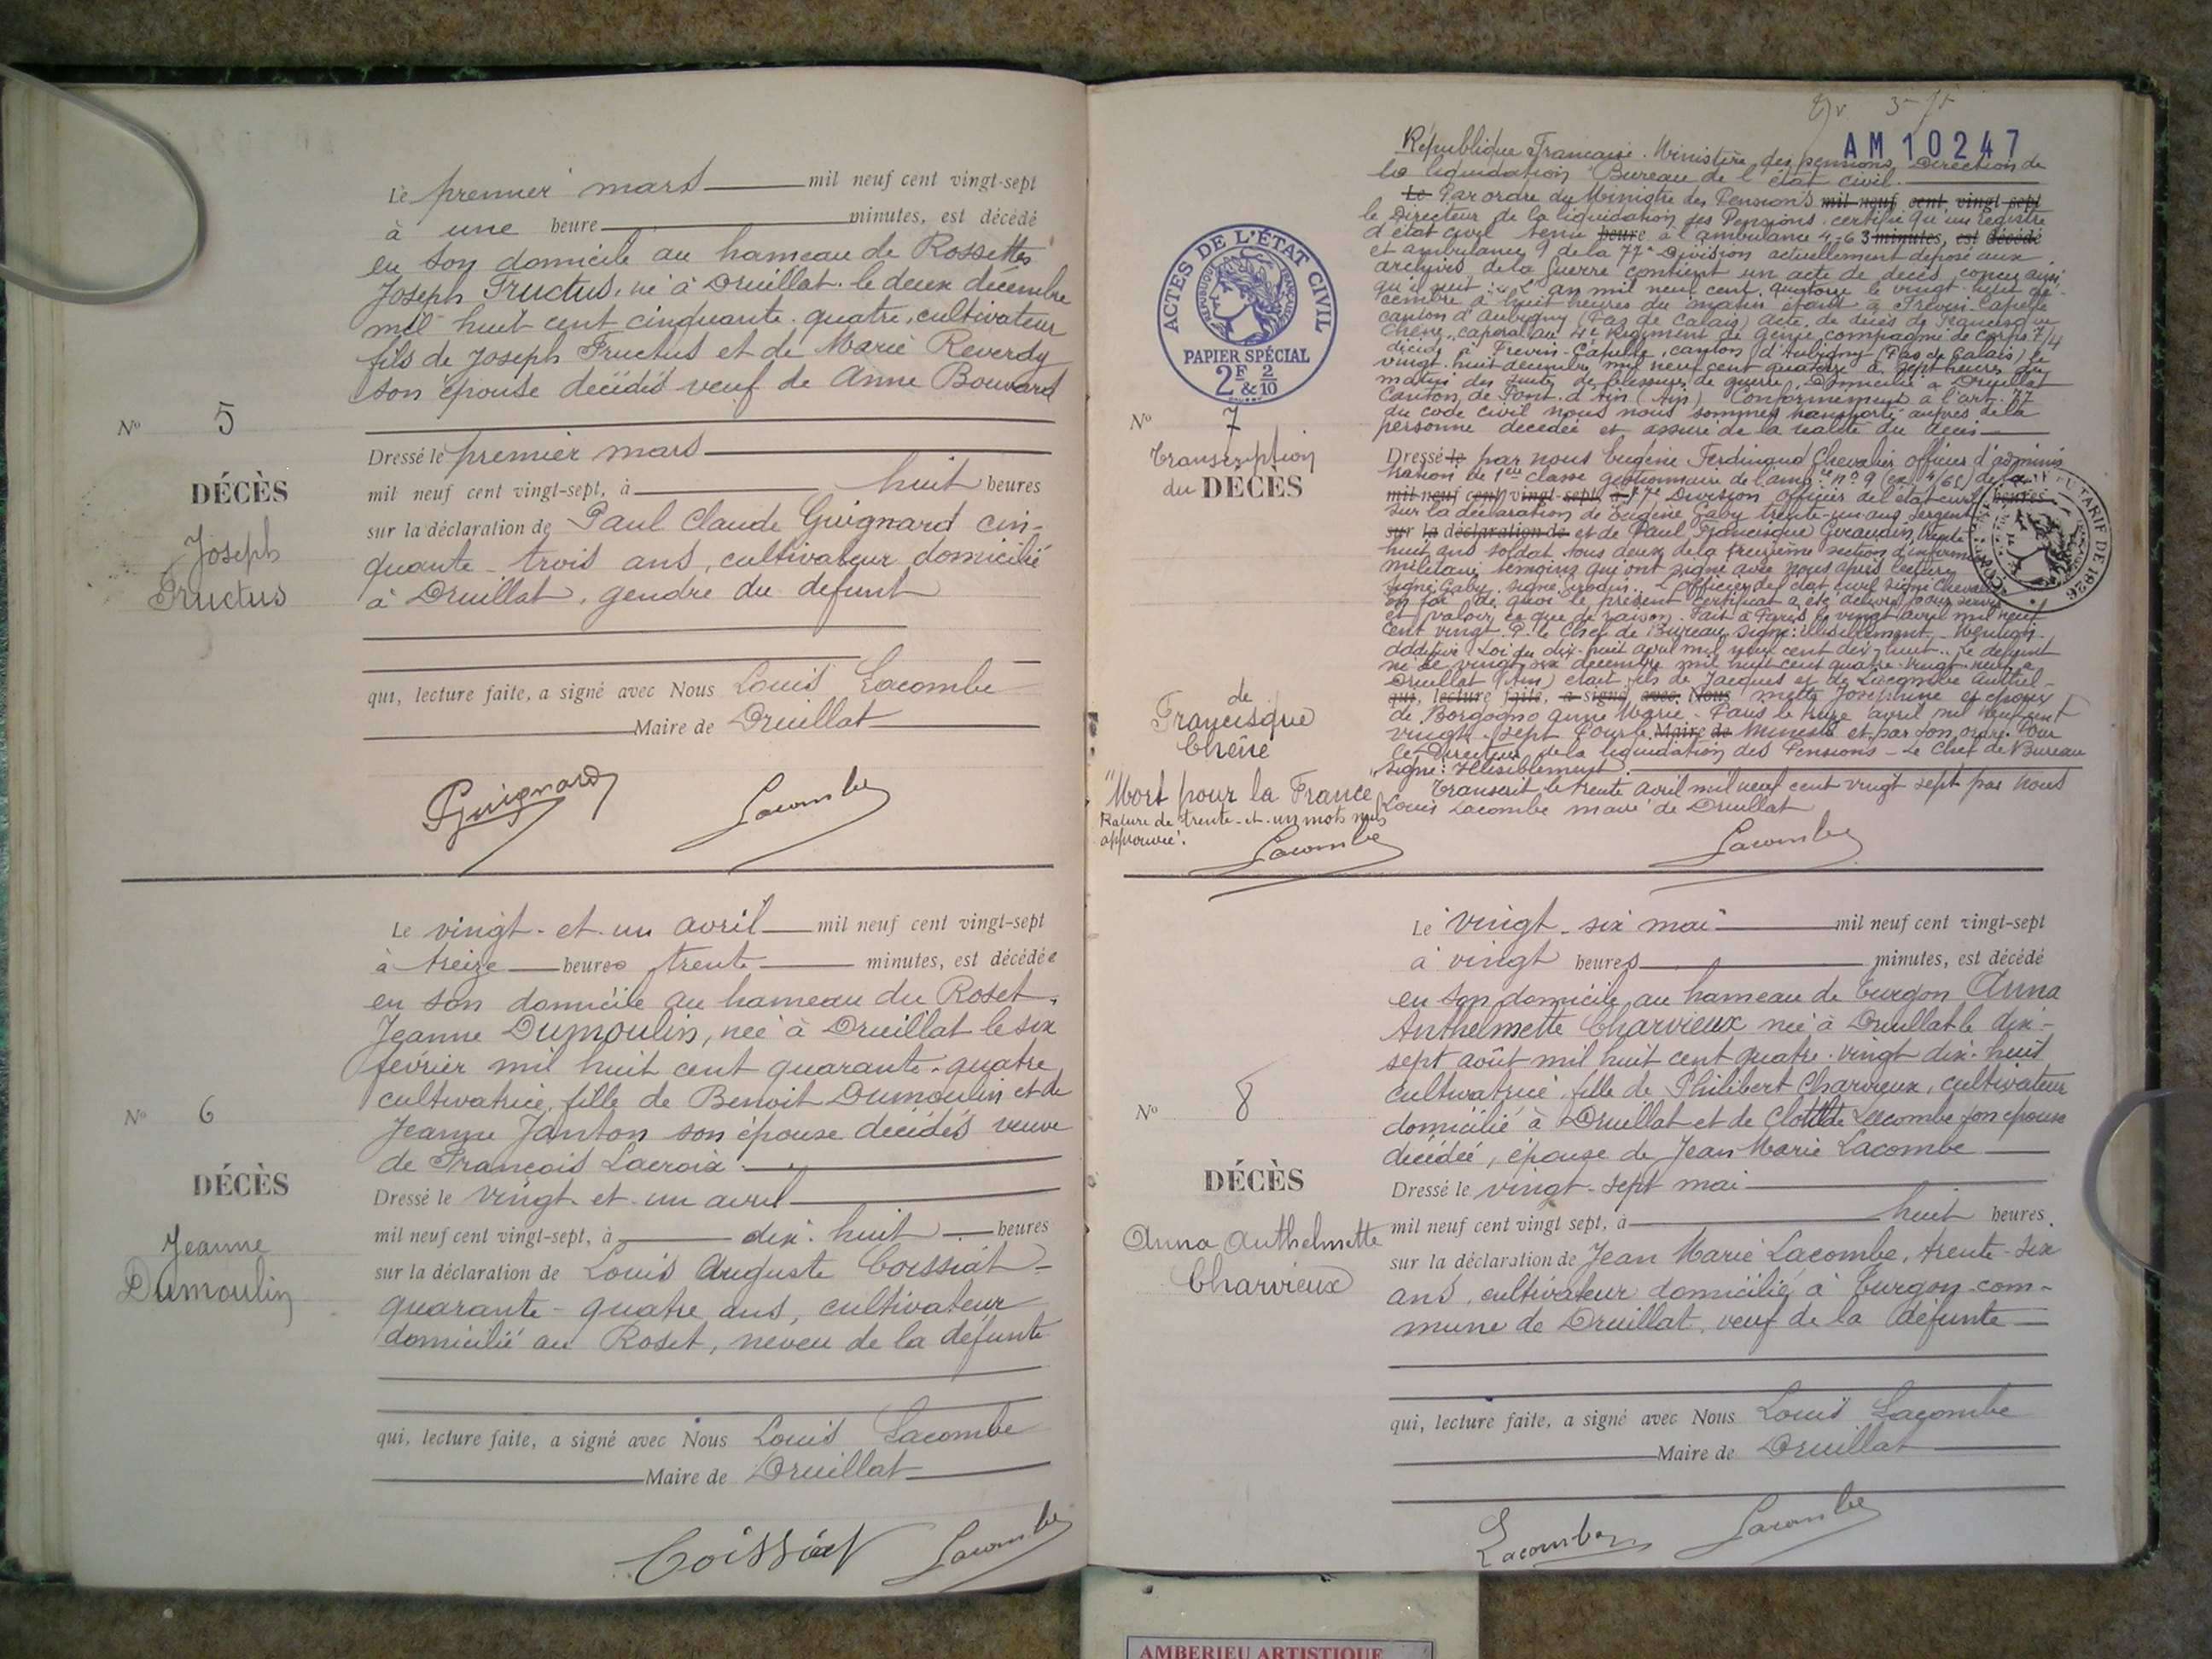 Le premier mars mil neuf cent vingt-sept
à une heure minutes, est décédé
en son domicile au hameau de Rossettes
Joseph Fructus, né à Druillat le deux décembre
mil huit cent cinquante-quatre, cultivateur
fils de Joseph Fructus et de Marie Reverdy
son épouse décédés veuf de Anne Bouvard
No 5
DÉCÈS
Joseph
Fructus
Dressé le premier mars
mil neuf cent vingt-sept, à huit heures
sur la déclaration de Paul Claude Guignard cin-
quante-trois ans, cultivateur domicilié
à Druillat, gendre du defunt
qui, lecture faite, a signé avec Nous Louis Lacombe
Maire de Druillat
PGuignard Lacombe
Le vingt-et-un avril mil neuf cent vingt-sept
à treize heures trente minutes, est décédée
en son domicile au hameau du Roset,
Jeanne Dumoulin, née à Druillat le six
février mil huit cent quarante-quatre
cultivatrice, fille de Benoit Dumoulin et de
Jeanne Janton son épouse décédés veuve
de François Lacroix
No 6
DÉCÈS
Jeanne
Dumoulin
Dressé le vingt-et-un avril
mil neuf cent vingt-sept, à dix-huit heures
sur la déclaration de Louis Auguste Coissiat
quarante-quatre ans, cultivateur
domicilié au Roset, neveu de la défunte
qui, lecture faite, a signé avec Nous Louis Lacombe
Maire de Druillat
Coissiat Lacombe
AM 10247
République Française. Ministère des pensions Direction de
la liquidation Bureau de l'état civil.
Le Par ordre du Ministre des Pensions mil neuf cent vingt-sept
le Directeur de la liquidation des Pensions certifie qu'un registre
d'état civil tenu heure à l'ambulance 4-63 minutes, est décédé
et ambulance 9 de la 77e Division actuellement déposé aux
archives de la Guerre contient un acte de décès conçu ainsi
qu'il suit : L'an mil neuf cent quatorze le vingt-huit dé-
cembre à huit heures du matin étant à Frévin-Capelle
canton d'Aubigny (Pas de Calais) Acte de décès de Francisque
Chêne, caporal au 4e Régiment de Génie compagnie de corps 7/4
décédé à Frevin-Capelle, canton d'Aubigny (Pas de Calais) le
vingt-huit décembre mil neuf cent quatorze à sept heures du
matin des suites de blessures de guerre, Domicilié à Druillat
Canton de Pont-d'Ain (Ain) Conformément à l'art. 77
du code civil nous nous sommes transporté auprès de la
personne décédée et assuré de la réalité du décès
ACTES DE L'ÉTAT CIVIL
RÉPUBLIQUE FRANÇAISE
PAPIER SPÉCIAL
2F 2/10
&
No 7
Transcription
du DÉCÈS
de
Francisque
Chêne
"Mort pour la France"
Rature de trente-et-un mots nuls
approuvée.
Lacombe
Dressé le par nous Eugène Ferdinand Chevalier officier d'adminis
tration de 1ère classe gestionnaire de l'amb. no 9 (ex 4/63) de la
mil neuf cent vingt-sept à 77e Division officier de l'état civil heures
sur la déclaration de Eugène Gaby trente-un ans sergent
sur la déclaration de et de Paul Francisque Geraudin trente
huit ans soldat tous deux de la treizième section d'infirmiers
militaire témoins qui ont signé avec nous après lecture
signé Gaby, signé L'officier de l'état civil signé Chevalier
en foi de quoi le présent certificat a été délivré pour servir
et valoir ce que de raison. Fait à Paris le vingt avril mil neuf
cent vingt. P. le Chef de Bureau signé : illisiblement. Mention
additive Loi du dix-huit avril mil neuf cent dix-huit. Le défunt
né le vingt six décembre mil huit cent quatre-vingt-neuf à
Druillat (Ain) était fils de Jacques et de Lacombe Anthel-
qui, lecture faite, a signé avec Nous mette Joséphine et époux
de Borgogno Anne Marie. Paris le treize avril mil neuf cent
vingt-sept Pour le Maire de Ministre et par son ordre. Pour
le Directeur de la liquidation des Pensions - Le Chef de Bureau
signé : Illisiblement
Transcrit le trente avril mil neuf cent vingt sept par Nous
Louis Lacombe maire de Druillat
Lacombe
TARIF DE 1926
Le vingt-six mai mil neuf cent vingt-sept
à vingt heures minutes, est décédé
en son domicile au hameau de Turgon Anna
Anthelmette Charvieux née à Druillat le dix-
sept août mil huit cent quatre-vingt dix-huit
cultivatrice fille de Philibert Charvieux, cultivateur
domicilié à Druillat et de Clotilde Lacombe son épouse
décédée, épouse de Jean Marie Lacombe
No 8
DÉCÈS
Anna Anthelmette
Charvieux
Dressé le vingt-sept mai
mil neuf cent vingt sept, à huit heures
sur la déclaration de Jean Marie Lacombe, trente-six
ans, cultivateur domicilié à Turgon com-
mune de Druillat, veuf de la défunte
qui, lecture faite, a signé avec Nous Louis Lacombe
Maire de Druillat
Lacombe Lacombe
AMBERIEU ARTISTIQUE